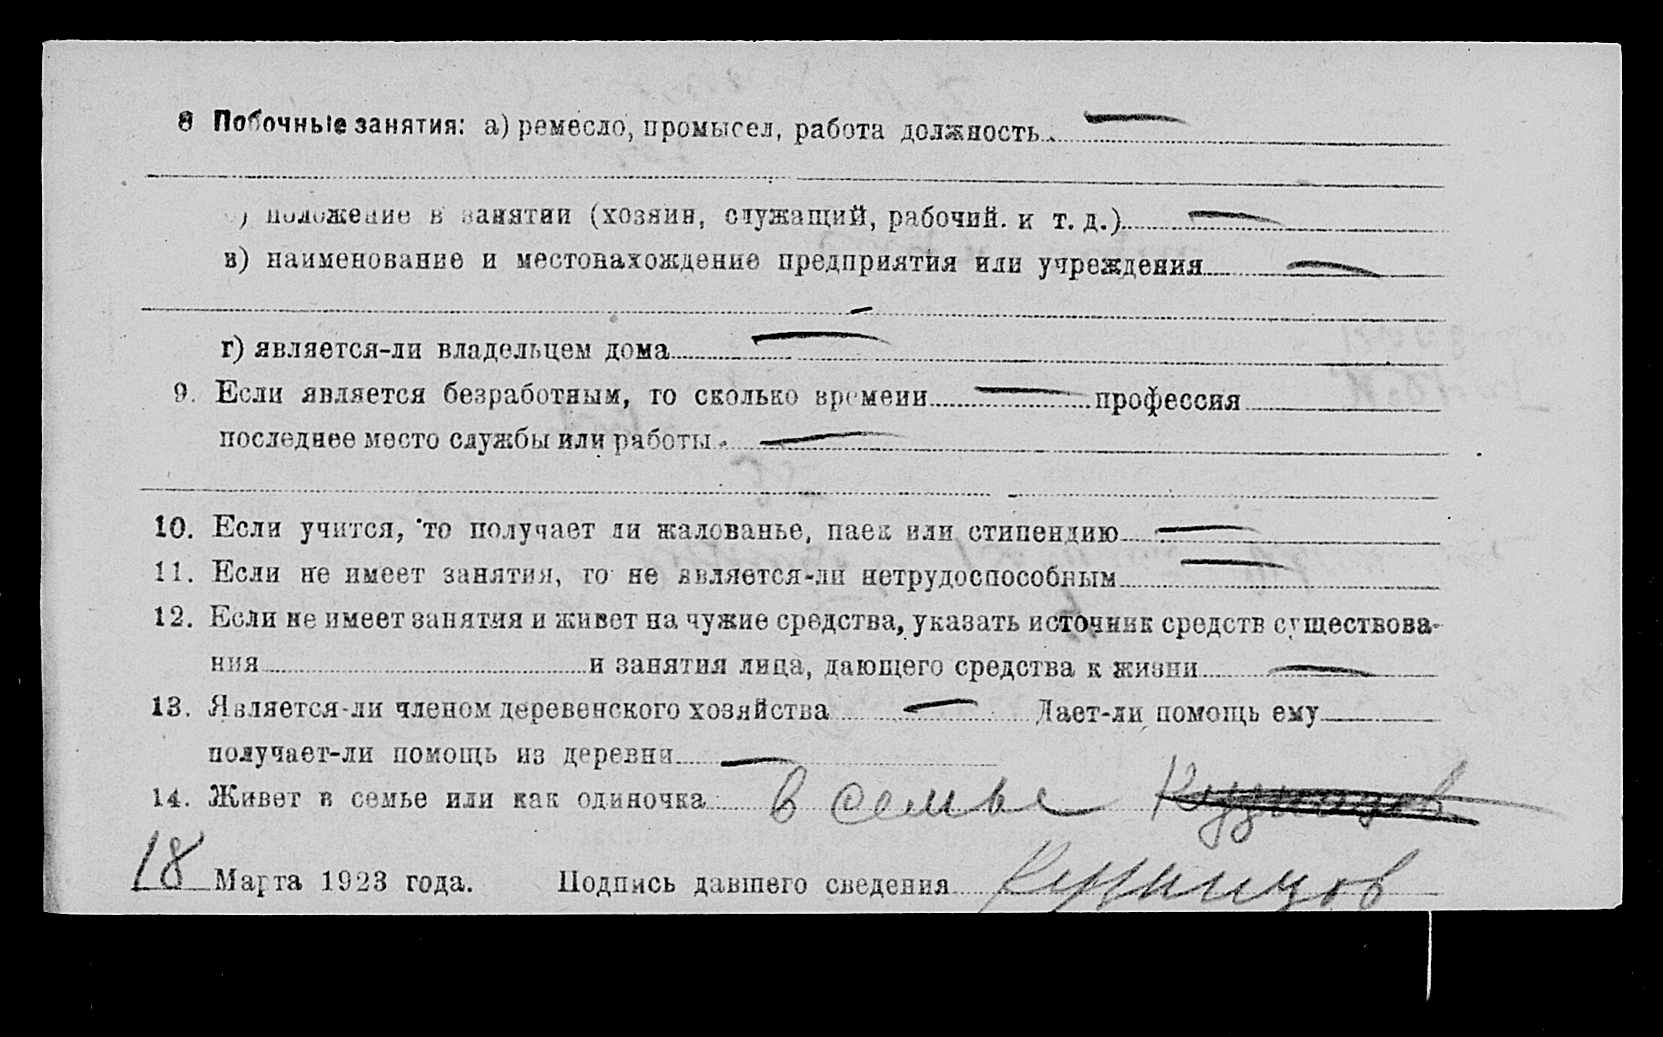 8 Побочные занятия: а) ремесло, промысел, работа должность
) положение в занятии (хозяин, служащий, рабочий. и т. д.)
в) наименование и местонахождение предприятия или учреждения
г) является-ли владельцем дома
9. Если является безработным, то сколько времени профессия
последнее место службы или работы
10. Если учится, то получает ли жалованье, паек или стипендию
11. Если не имеет занятия, то не является-ли нетрудоспособным
12. Если не имеет занятия и живет на чужие средства, указать источник средств существова-
ния и занятия лица, дающего средства к жизни
13. Является-ли членом деревенского хозяйства Дает-ли помощь ему
получает-ли помощь из деревни
14. Живет в семье или как одиночка в семье
18 Марта 1923 года. Подпись давшего сведения